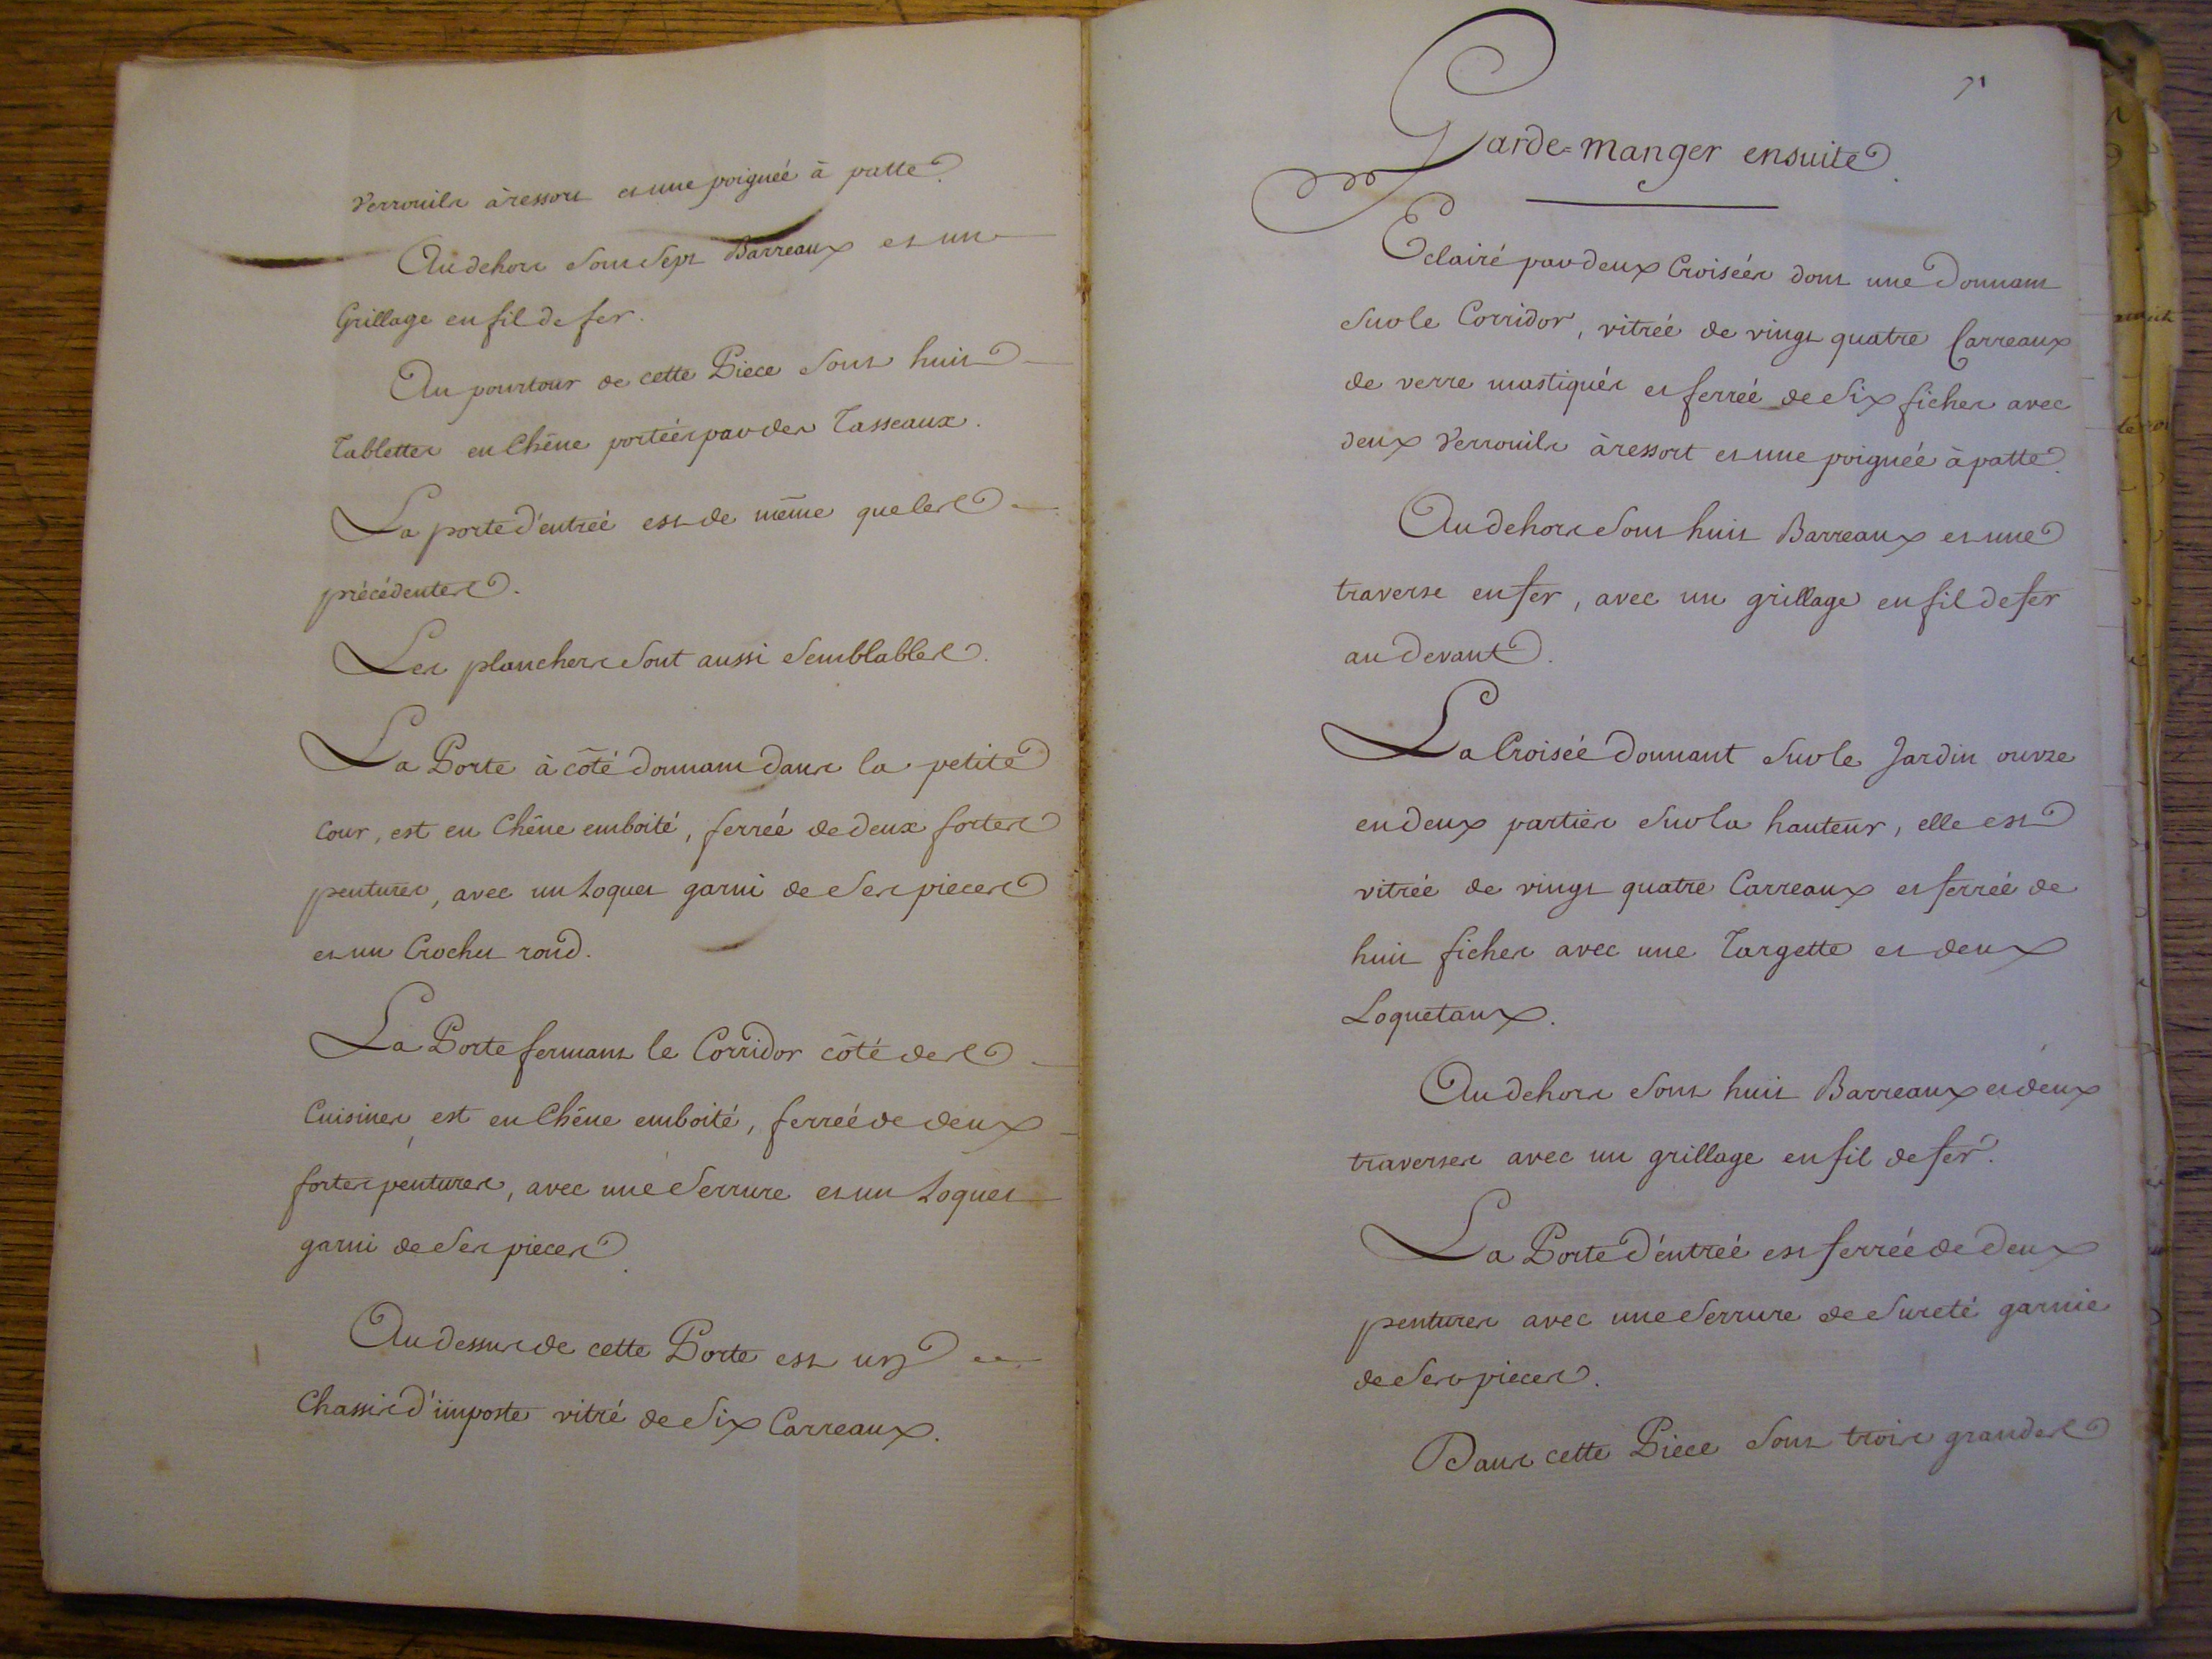 Verrouils à ressort et une poignée à patte.
Au dehors sont Sept Barreaux et un
Grillage en fil de fer.
Au pourtour de cette Piece sont huit
Tablettes en Chêne portées par des Tasseaux.
La porte d'entrée est de même que les
précédentes.
Les planchers sont aussi Semblables.
La Porte à côté donnant dans la petite
Cour, est en Chêne emboité, ferrée de deux fortes
pentures, avec un Loquet garni de Ses pieces
et un Crochet rond.
La Porte fermant le Corridor côté des
Cuisines, est en Chêne emboité, ferrée de deux
fortes pentures, avec une Serrure et un Loquet
garni de Ses pieces.
Au dessus de cette Porte est un
Chassis d'imposte vitré de Six Carreaux.
7
Garde=manger ensuite.
Eclairé par deux Croisées dont une Donnant
Sur le Corridor, vitrée de vingt quatre Carreaux
de verre mastiqués et ferrée de Six fiches avec
deux Verrouils à ressort et une poignée à patte.
Au dehors Sont huit Barreaux et une
traverse en fer, avec un grillage en fil de fer
au devant.
La Croisée Donnant Sur le Jardin ouvre
en deux parties Sur la hauteur, elle est
vitrée de vingt quatre Carreaux et ferrée de
huit fiches avec une Targette et deux
Loquetaux.
Au dehors Sont huit Barreaux et deux
traverses avec un grillage en fil de fer.
La Porte D'entrée est ferrée de deux
pentures avec une Serrure de Sureté garnie
de Ses pieces.
Dans cette Piece Sont trois grandes